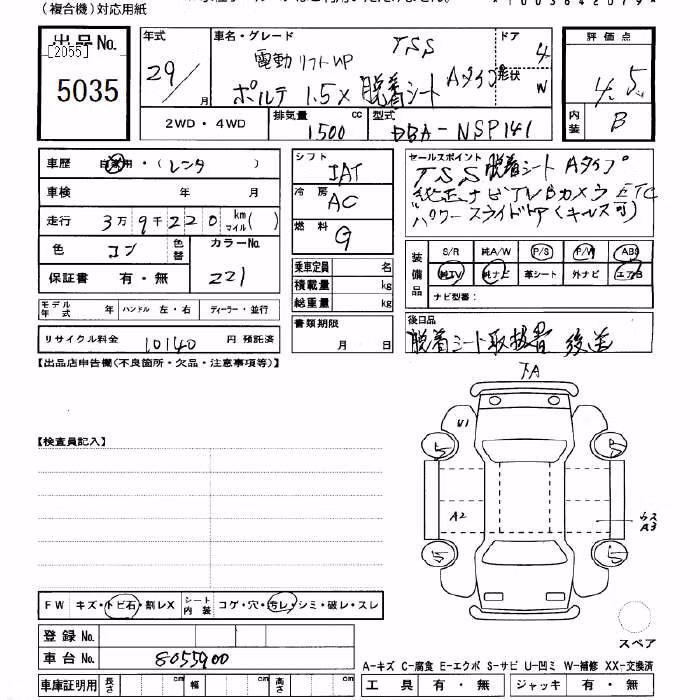 (複合機)対応用紙
出品No.
[2055]
5035
年式
29/
月
車名・グレード
TSS
電動リフトUP
ポルテ 1.5X 脱着シート Aタイプ
ドア
4
形状
W
評価点
4.5
内装
B
2WD・4WD
排気量
1500 cc
型式
DBA-NSP141
車歴 自家用・(レンタ )
車検 年 月
走行 3万9千220 km マイル( )
色 コン 色替 カラーNo.
保証書 有・無 221
モデル年式 年 ハンドル 左・右 ディーラー・並行
リサイクル料金 10140 円 預託済
シフト
IAT
冷房
AC
燃料
G
乗車定員 名
積載量 kg
総重量 kg
書類期限
月 日
セールスポイント
TSS 脱着シート Aタイプ
純正ナビTVBカメラ ETC
パワースライドドア(キーレス可)
装備品
S/R 純A/W P/S P/W ABS
純TV 純ナビ 革シート 外ナビ エアB
ナビ型番:
後日品
脱着シート取扱書 後送
【出品店申告欄(不良箇所・欠品・注意事項等)】
【検査員記入】
下A
U1
5
5
A2
A3
5
5
スペア
FW キズ・トビ石・割レX シート内装 コゲ・穴・汚レ・シミ・破レ・スレ
登録No.
車台No. 8055900
車庫証明用 長さ cm 幅 cm 高さ cm
A-キズ C-腐食 E-エクボ S-サビ U-凹ミ W-補修 XX-交換済
工具 有・無 ジャッキ 有・無